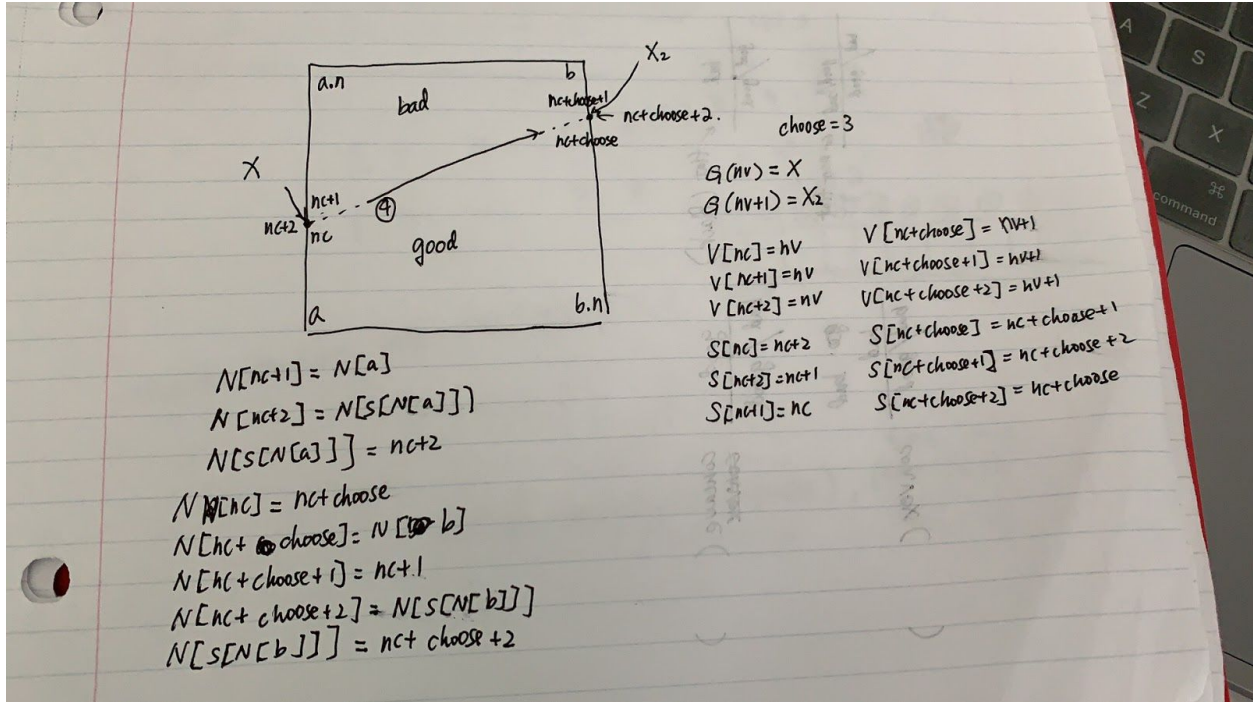 a.n
bad
b
X₂
nc+choose+1
nc+choose+2.
nc+choose
choose=3
X
nc+1
nc+2
nc
④
good
a
b.n
G(nv) = X
G(nv+1) = X₂
V[nc]=nv
V[nc+1]=nv
V[nc+2]=nv
V[nc+choose] = nv+1
V[nc+choose+1]=nv+1
V[nc+choose+2]=nv+1
S[nc]=nc+2
S[nc+2]=nc+1
S[nc+1]=nc
S[nc+choose] = nc+choose+1
S[nc+choose+1] = nc+choose+2
S[nc+choose+2] = nc+choose
N[nc+1] = N[a]
N[nc+2] = N[S[N[a]]]
N[S[N[a]]] = nc+2
N[nc] = nc+choose
N[nc+choose]= N[b]
N[nc+choose+1] = nc+1
N[nc+choose+2] = N[S[N[b]]]
N[S[N[b]]] = nc+choose+2
A
S
Z
X
⌘
command